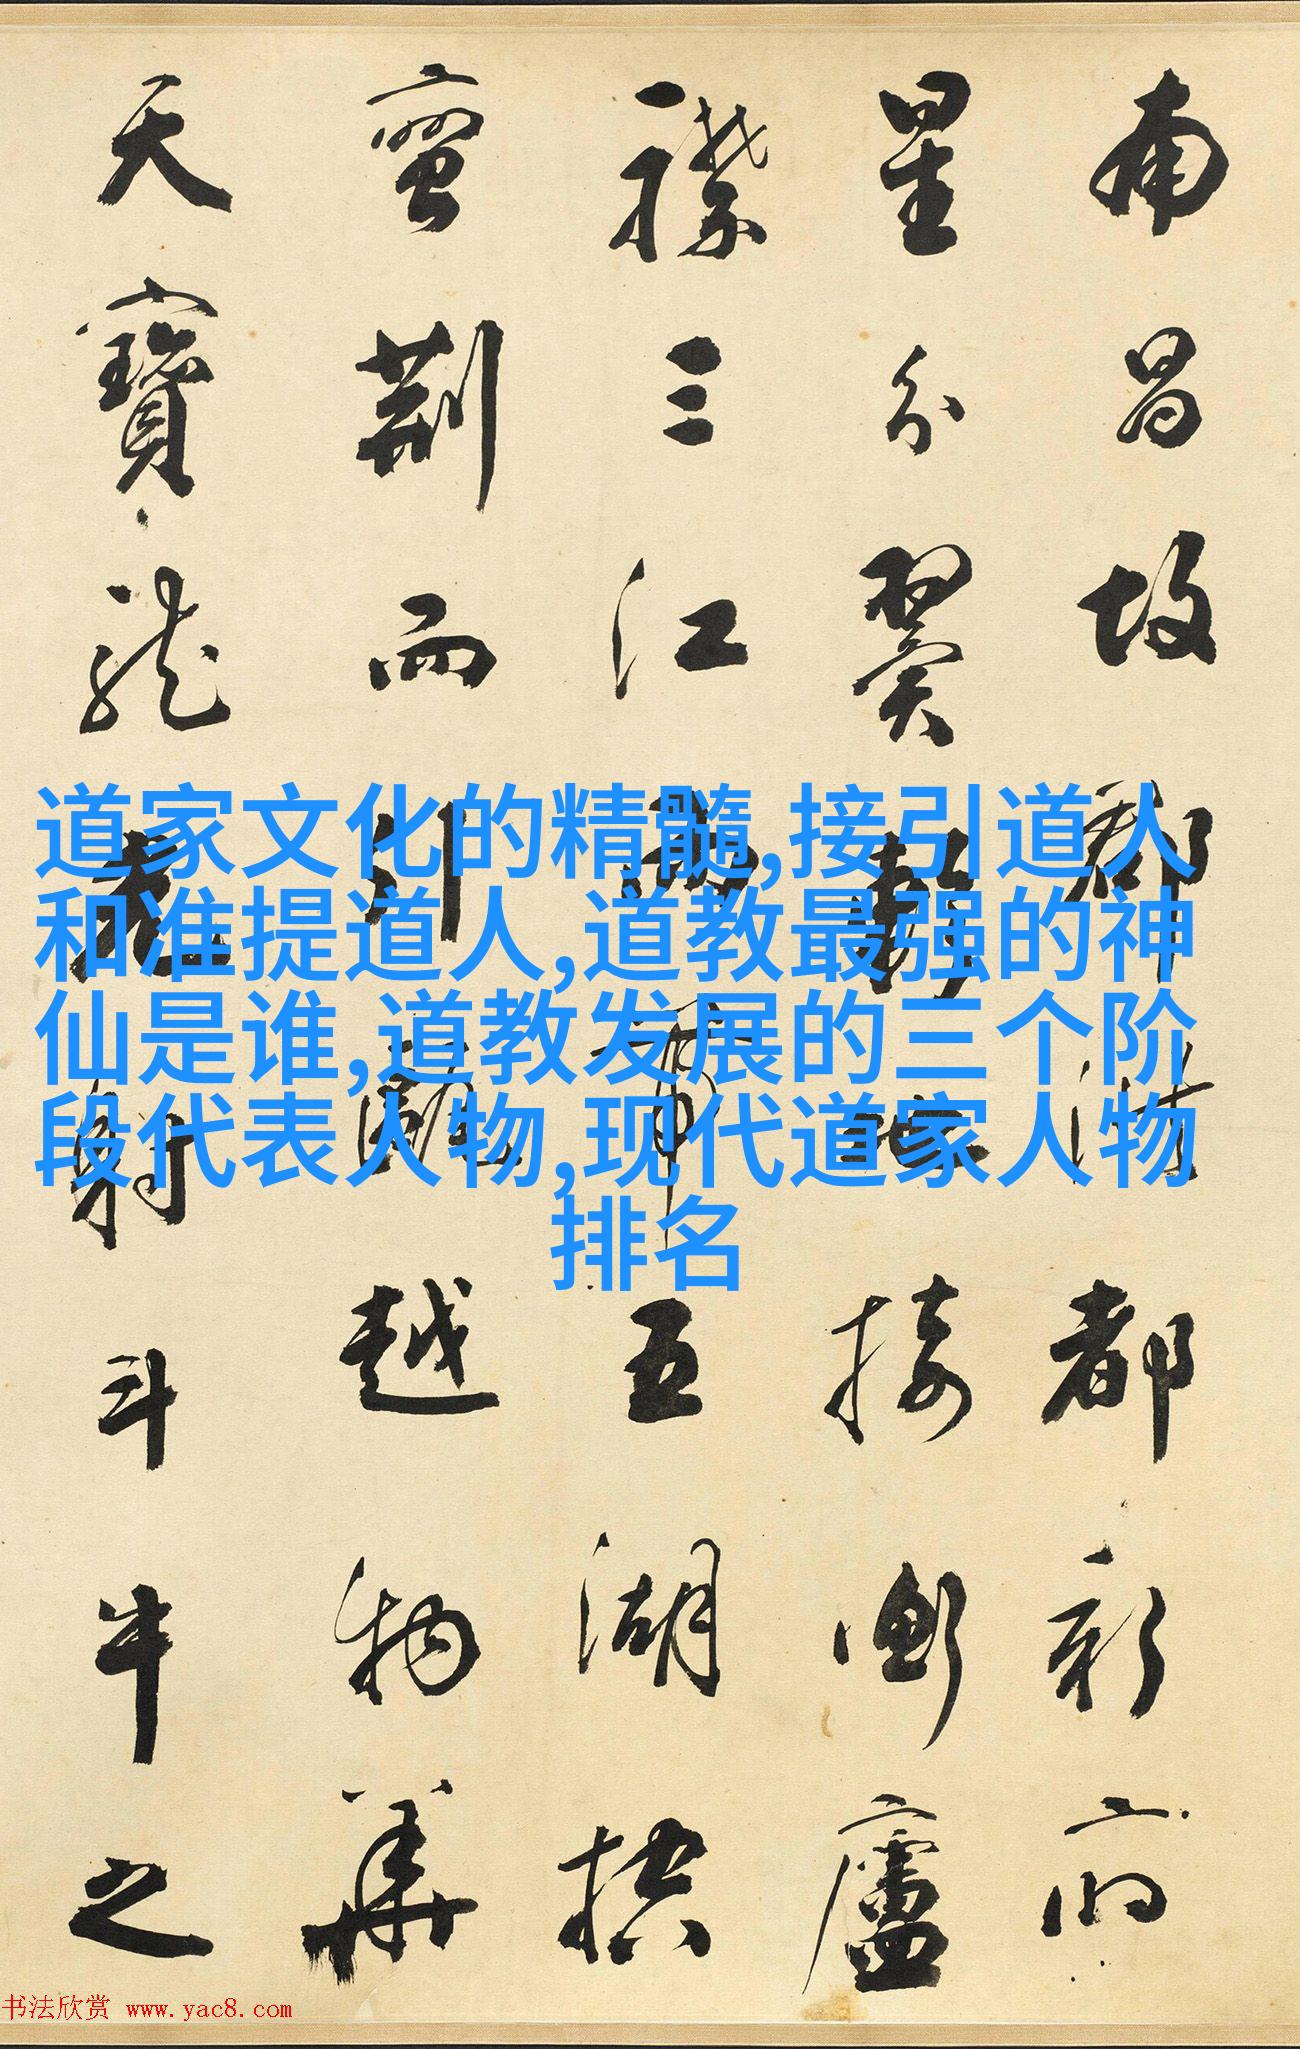 南昌故郡洪都新府
星分翼軫地接衡廬
襟三江而帶五湖控
蠻荊而引甌越物華
天寶龍光射斗牛之
道家文化的精髓,接引道人
和准提道人,道教最强的神
仙是谁,道教发展的三个阶
段代表人物,现代道家人物
排名
书法欣赏 www.yac8.com